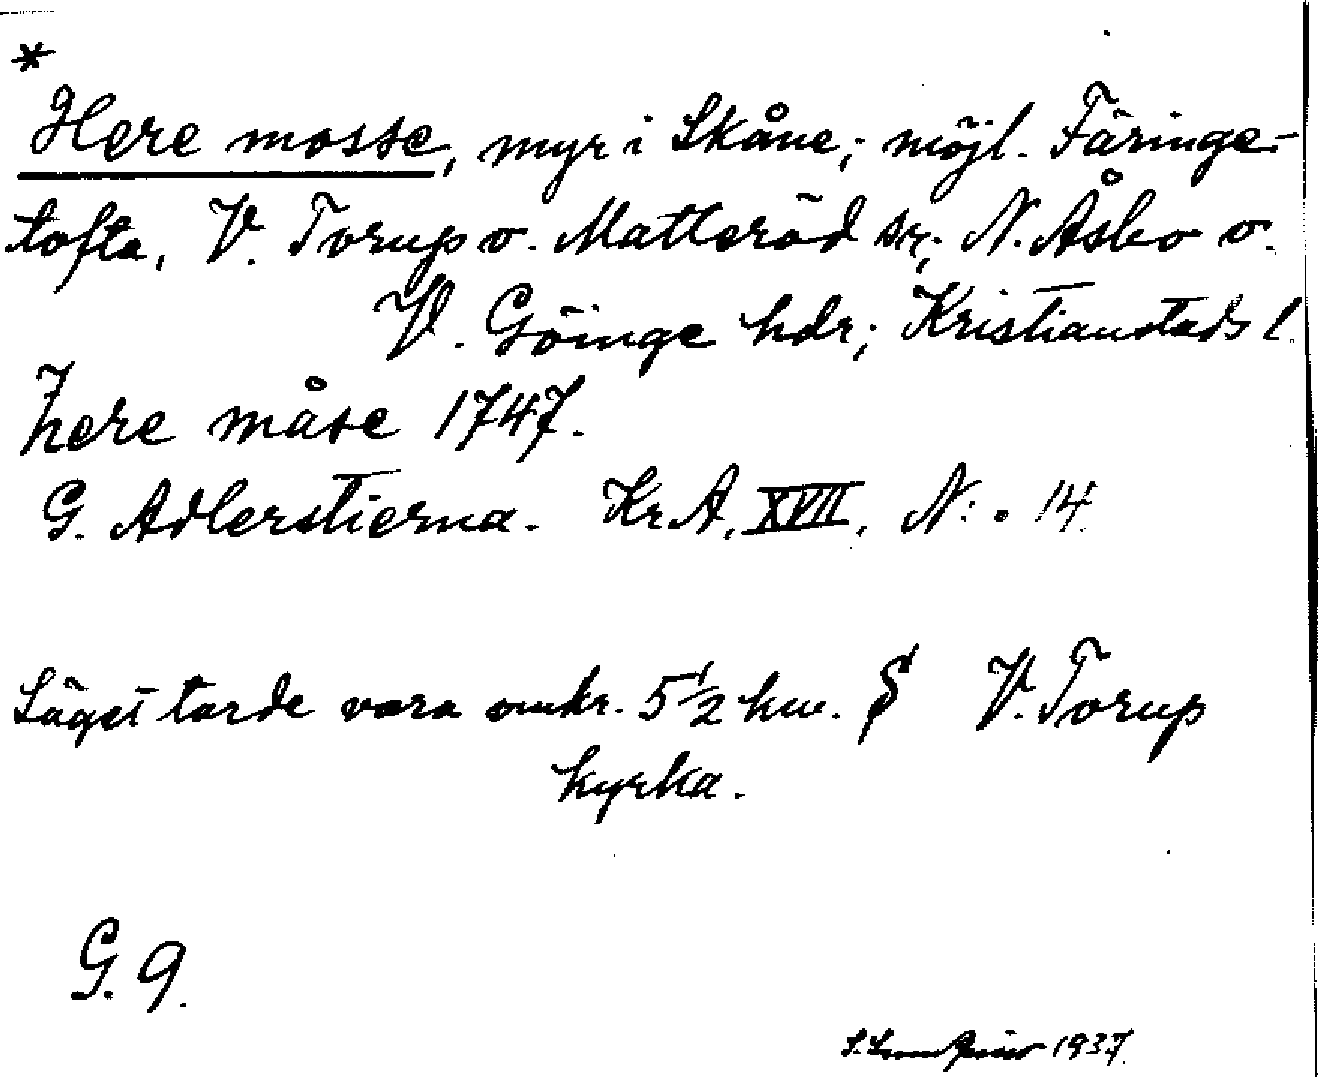 *
Here mosse, myr i Skåne; möjl. Färinge-
tofta, V. Torup o. Matteröd sr; N. Åsbo o.
V. Göinge hdr; Kristianstads l.
here måse 1747.
G. Adlerstierna. Kr.A. XVII, N:. 14.
Läget torde vara omkr. 5 1/2 km. S V. Torup
kyrka.
G. 9.
1937.